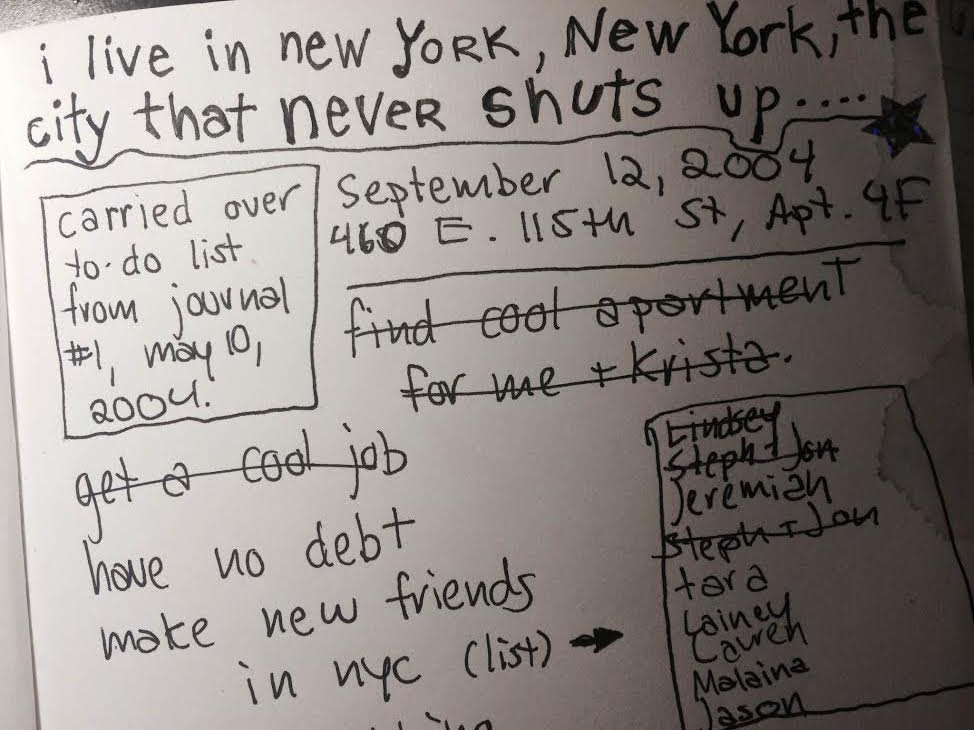 i live in new YORK, New York, the
city that never shuts up....
carried over
to-do list
from journal
#1, may 10,
2004.
September 12, 2004
460 E. 115th St, Apt. 4F
find cool apartment
for me + Krista.
get a cool job
have no debt
make new friends
in nyc (list)
Lindsey
Steph + Jon
Jeremiah
Steph + Jon
tara
Lainey
Lauren
Malaina
Jason